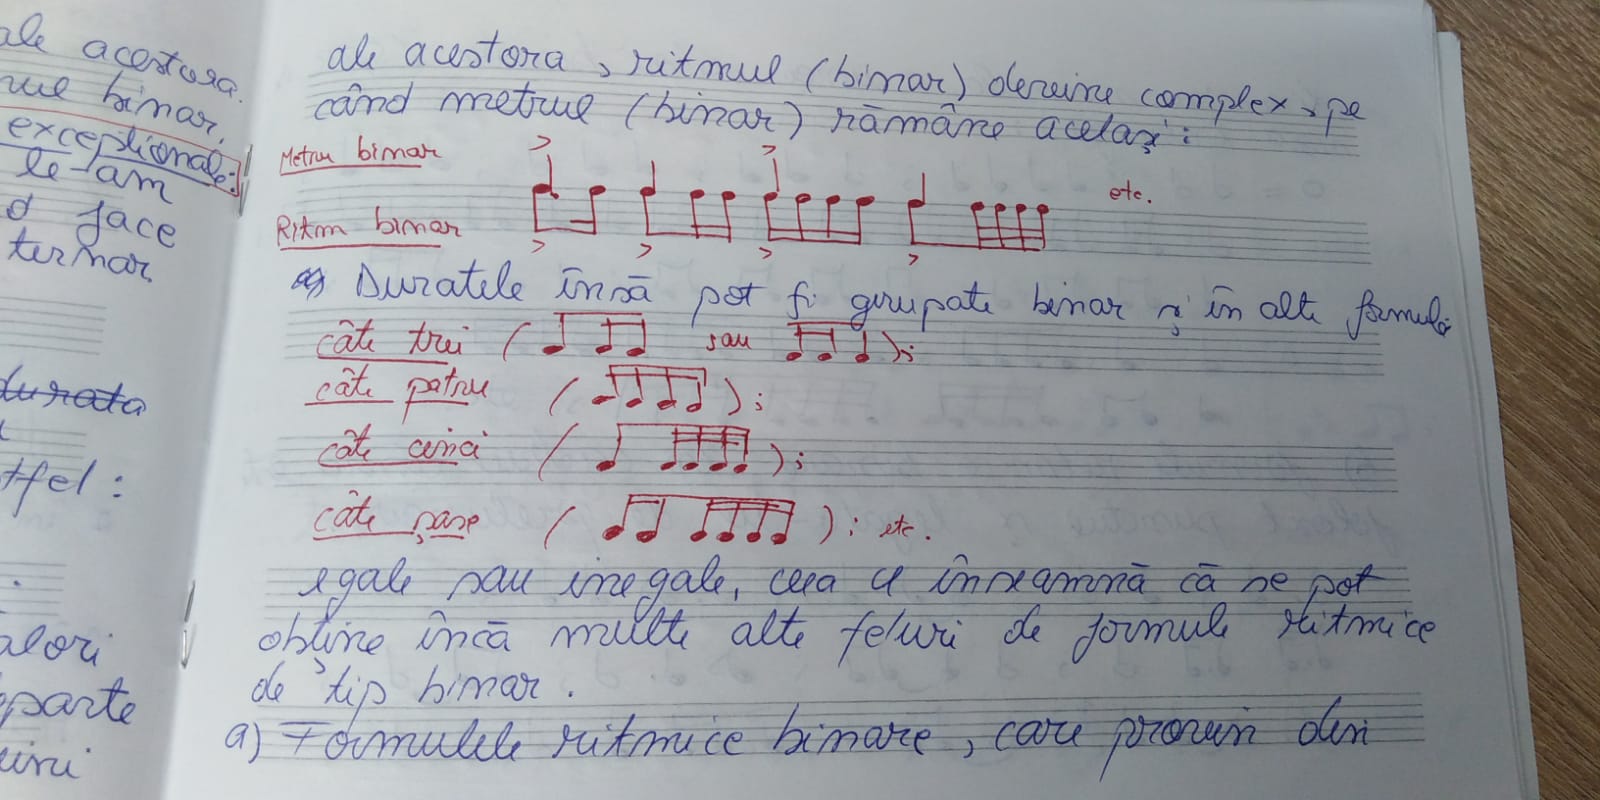 ale acestora.
rul binar,
exceptionale:
le-am
d face
ternar.
durata
tfel:
alori
parte
uini
ale acestora, ritmul (binar) devine complex, pe
când metrul (binar) rămâne același:
Metru binar
etc.
Ritm binar
Duratele însă pot fi grupate binar și în alte formule
câte trei ( sau );
câte patru ( );
câte cinci ( );
câte șase ( ); etc.
egale sau inegale, ceea ce înseamnă că se pot
obține încă multe alte feluri de formule ritmice
de tip binar.
a) Formulele ritmice binare, care provin din